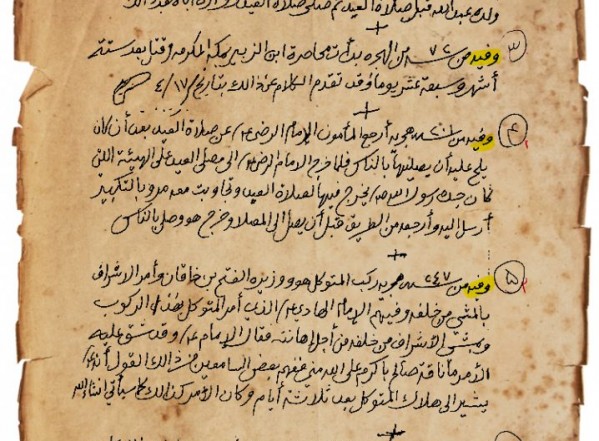 ولده عبد الله قبل صلاة العيد ثم صلى صلاة العيد
٣ وفيه من ٧٢ سنه من الهجره بدأت محاصرة ابن الزبير بمكة المكرمه وقتل بعد ستة
أشهر وسبعة عشر يوما وقد تقدم الكلام عن ذالك بتاريخ ١٧/٤
٤ وفيه من سنه هجريه أرجع المأمون الإمام الرضا ع/ عن صلاة العيد بعد أن كان
يلح عليه أن يصليها بالناس فلما خرج الامام الرضا ع/ الى مصلى العيد على الهيئة اللتي
كان جده رسول الله ص/ يخرج فيها لصلاة العيد وتجاوبت معه مرو بالتكبير
أرسل اليه وأرجعه من الطريق قبل أن يصل الى المصلا وخرج هو وصلى بالناس
٥ وفيه من ٢٤٧ سنه هجريه ركب المتوكل هو ووزيره الفتح بن خاقان وأمر الاشراف
بالمشي من خلفه وفيهم الإمام الهادي ع/ الذي أمر المتوكل بهذا الركوب
وبمشي الاشراف من خلفه من أجل إهانته فقال الإمام ع/ وقد شق عليه
الأمر ما ناقة صالح بأكرم على الله مني ففهم بعض السامعين من ذالك القول أنه ع/
يشير الى هلاك المتوكل بعد ثلاثة أيام وكان الأمر كذالك كما سيأتي انشاء الله